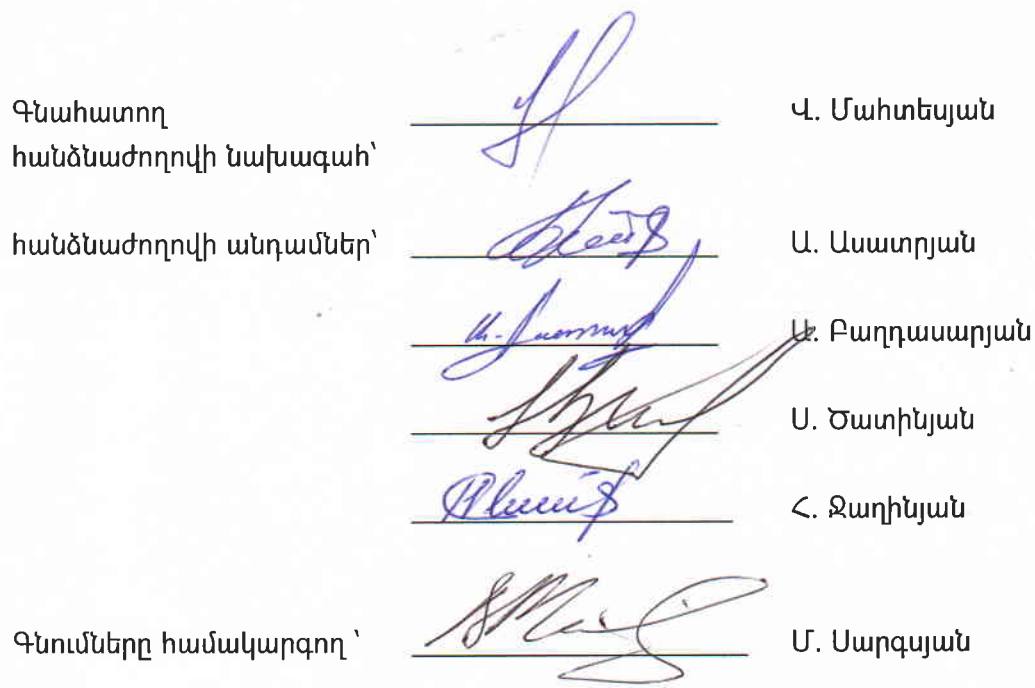 Գնահատող Վ. Մահտեսյան
հանձնաժողովի նախագահ՝
հանձնաժողովի անդամներ՝ Ա. Ասատրյան
Ա. Բաղդասարյան
Ս. Ծատինյան
Հ. Ջաղինյան
Գնումները համակարգող ՝ Մ. Սարգսյան